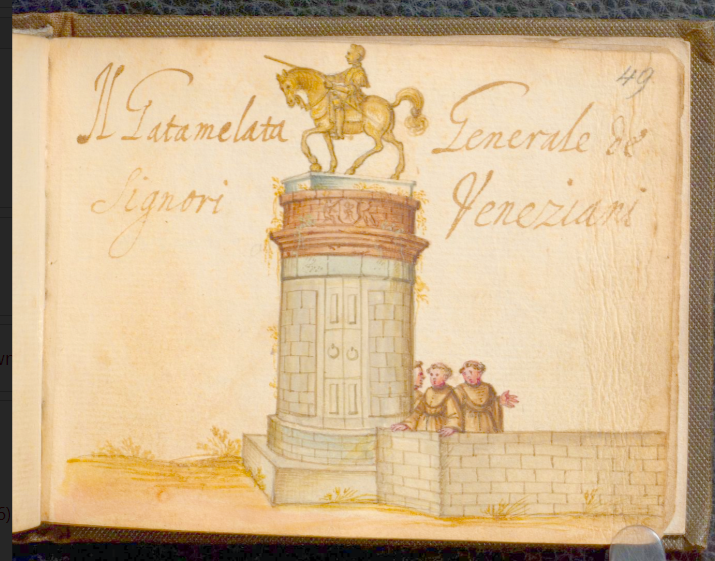 49
Il Gatamelata Generale de
Signori Veneziani